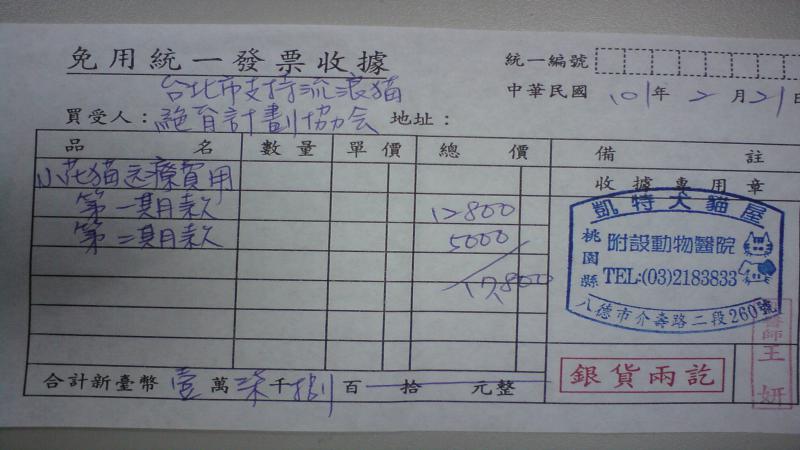 免用統一發票收據
統一編號
台北市支持流浪貓
中華民國 101年 2 月 21日
買受人：絕育計劃協会 地址：
品名 數量 單價 總價 備註
小花猫医療費用 收據專用章
第一期款 12800
第二期款 5000
17,800
凱特犬貓屋
桃園縣
附設動物醫院
TEL:(03)2183833
八德市介壽路二段260號
合計新臺幣 壹萬柒千捌百 拾 元整
銀貨兩訖
醫師王妍